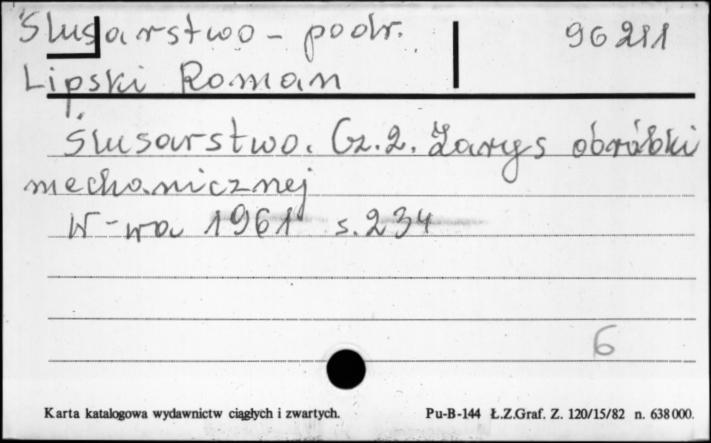 Ślusarstwo - podr. 96211
Lipski Roman
Ślusarstwo. Cz. 2. Zarys obróbki
mechanicznej
W-wa 1961 s. 234
6
Karta katalogowa wydawnictw ciągłych i zwartych. Pu-B-144 Ł.Z.Graf. Z. 120/15/82 n. 638000.